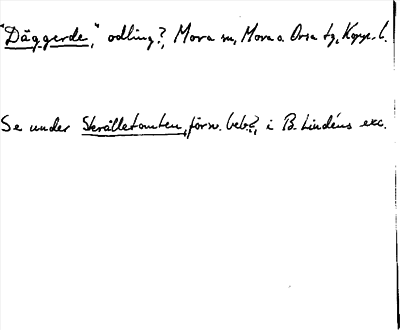 "Däggerde," odling?, Mora sn, Mora o. Orsa tg, Kopp. l.
Se under Skrålletomten, försv. beb?, i B. Lindéns exc.